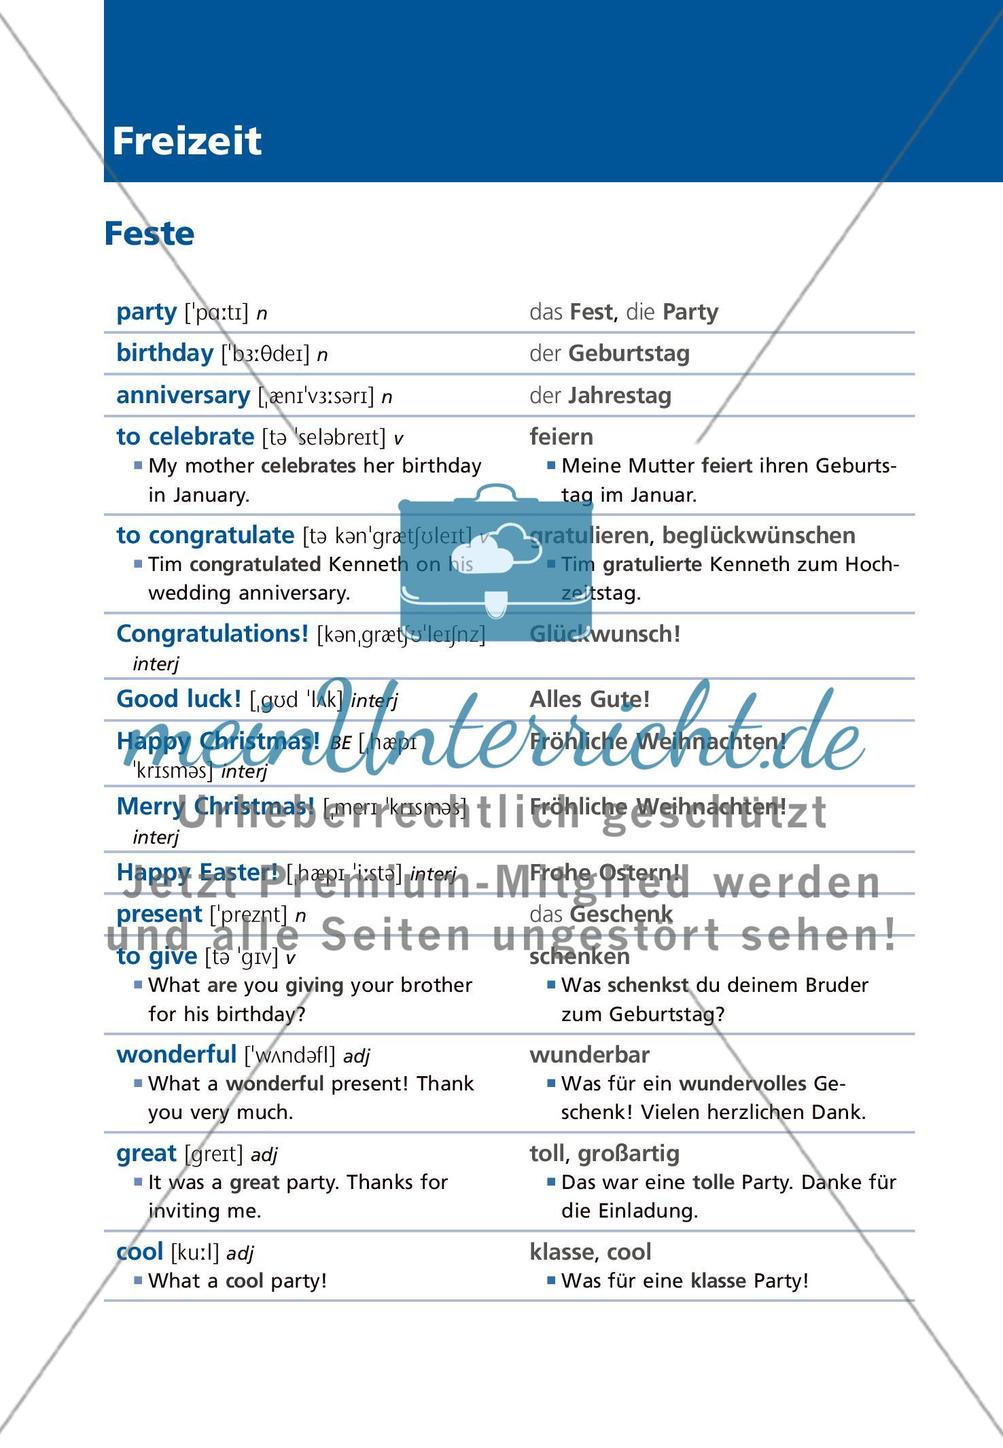 Freizeit
Feste
party [ˈpɑːtɪ] n das Fest, die Party
birthday [ˈbɜːθdeɪ] n der Geburtstag
anniversary [ˌænɪˈvɜːsərɪ] n der Jahrestag
to celebrate [tə ˈseləbreɪt] v feiern
▪ My mother celebrates her birthday ▪ Meine Mutter feiert ihren Geburts-
in January. tag im Januar.
to congratulate [tə kənˈgrætʃʊleɪt] v gratulieren, beglückwünschen
▪ Tim congratulated Kenneth on his ▪ Tim gratulierte Kenneth zum Hoch-
wedding anniversary. zeitstag.
Congratulations! [kənˌgrætʃʊˈleɪʃnz] Glückwunsch!
interj
Good luck! [ˌgʊd ˈlʌk] interj Alles Gute!
meinUnterricht.de
Happy Christmas! BE [ˌhæpɪ Fröhliche Weihnachten!
ˈkrɪsməs] interj
Merry Christmas! [ˌmerɪ ˈkrɪsməs] Fröhliche Weihnachten!
Urheberrechtlich geschützt
interj
Happy Easter! [ˌhæpɪ ˈiːstə] interj Frohe Ostern!
Jetzt Premium-Mitglied werden
present [ˈpreznt] n das Geschenk
und alle Seiten ungestört sehen!
to give [tə ˈgɪv] v schenken
▪ What are you giving your brother ▪ Was schenkst du deinem Bruder
for his birthday? zum Geburtstag?
wonderful [ˈwʌndəfl] adj wunderbar
▪ What a wonderful present! Thank ▪ Was für ein wundervolles Ge-
you very much. schenk! Vielen herzlichen Dank.
great [greɪt] adj toll, großartig
▪ It was a great party. Thanks for ▪ Das war eine tolle Party. Danke für
inviting me. die Einladung.
cool [kuːl] adj klasse, cool
▪ What a cool party! ▪ Was für eine klasse Party!